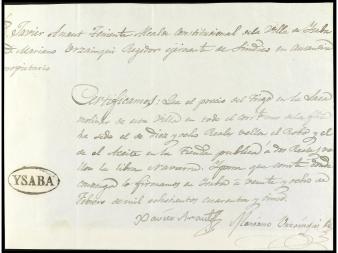 Javier Anaut Teniente Alcalde Constitucional de la Villa de Ysaba
Mariano Orzainqui Regidor ejerciente de Sindico en
propietario
Certificamos: Que el precio del Trigo en la
de esta Villa en todo el
ha sido el de diez y ocho Reales vellon el Robo y el
de el Aceite en la Tienda publica a dos Reales
la libra Navarra. Y para que conste donde
convenga lo firmamos en Ysaba a veinte y ocho de
Febrero de mil ochocientos cuarenta y
YSABA
Xavier Anaut
Mariano Orzainqui